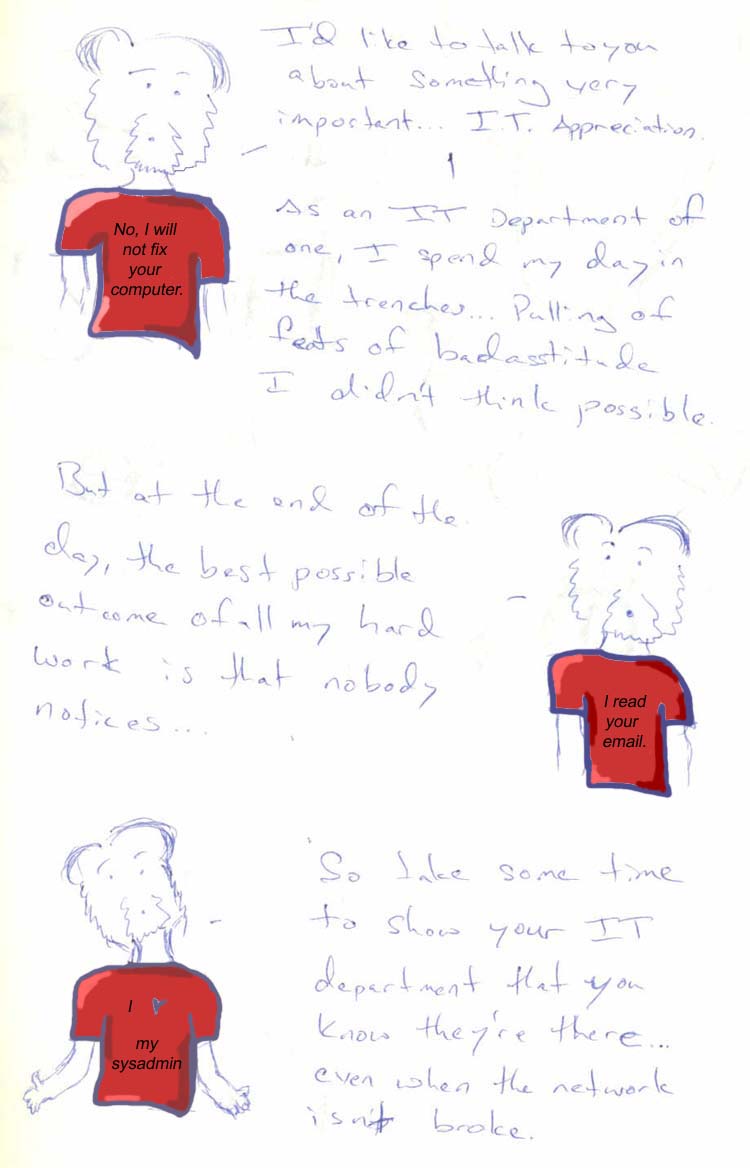 I'd like to talk to you
about something very
important... I.T. Appreciation.
No, I will
not fix
your
computer.
As an IT Department of
one, I spend my day in
the trenches... Pulling of
feats of badasstitude
I didn't think possible.
But at the end of the
day, the best possible
outcome of all my hard
work is that nobody
notices...
I read
your
email.
So take some time
to show your IT
department that you
know they're there...
even when the network
isn't broke.
I ♥
my
sysadmin